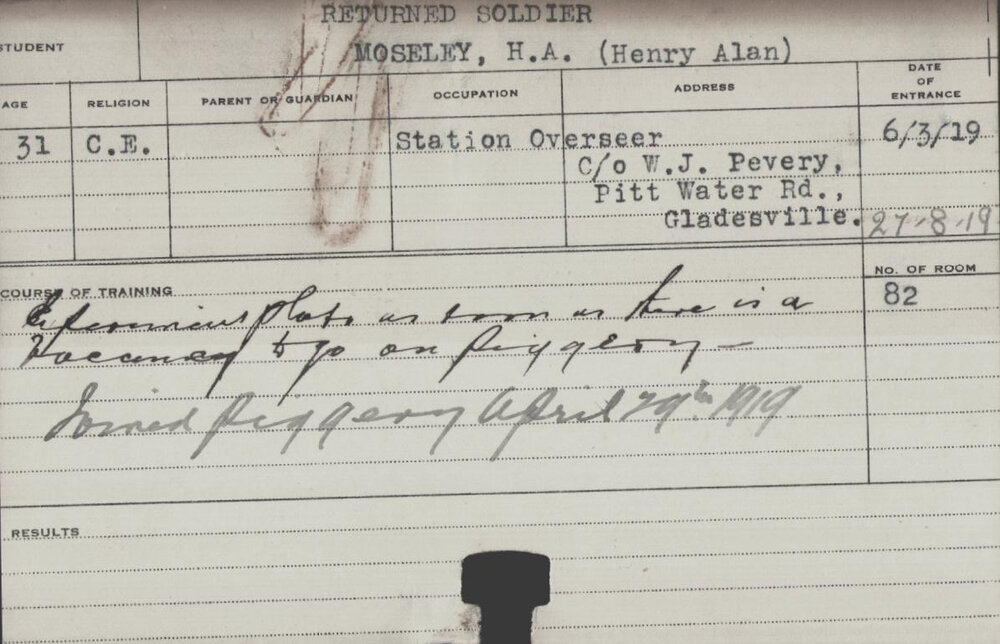 RETURNED SOLDIER
STUDENT
MOSELEY, H.A. (Henry Alan)
AGE RELIGION PARENT OR GUARDIAN OCCUPATION ADDRESS DATE OF ENTRANCE
31 C.E. Station Overseer 6/3/19
C/o W.J. Pevery,
Pitt Water Rd.,
Gladesville. 27-8-19
COURSE OF TRAINING NO. OF ROOM
82
Experiment Plots as soon as there is a
vacancy to go on piggery —
Joined piggery April 29th 1919
RESULTS